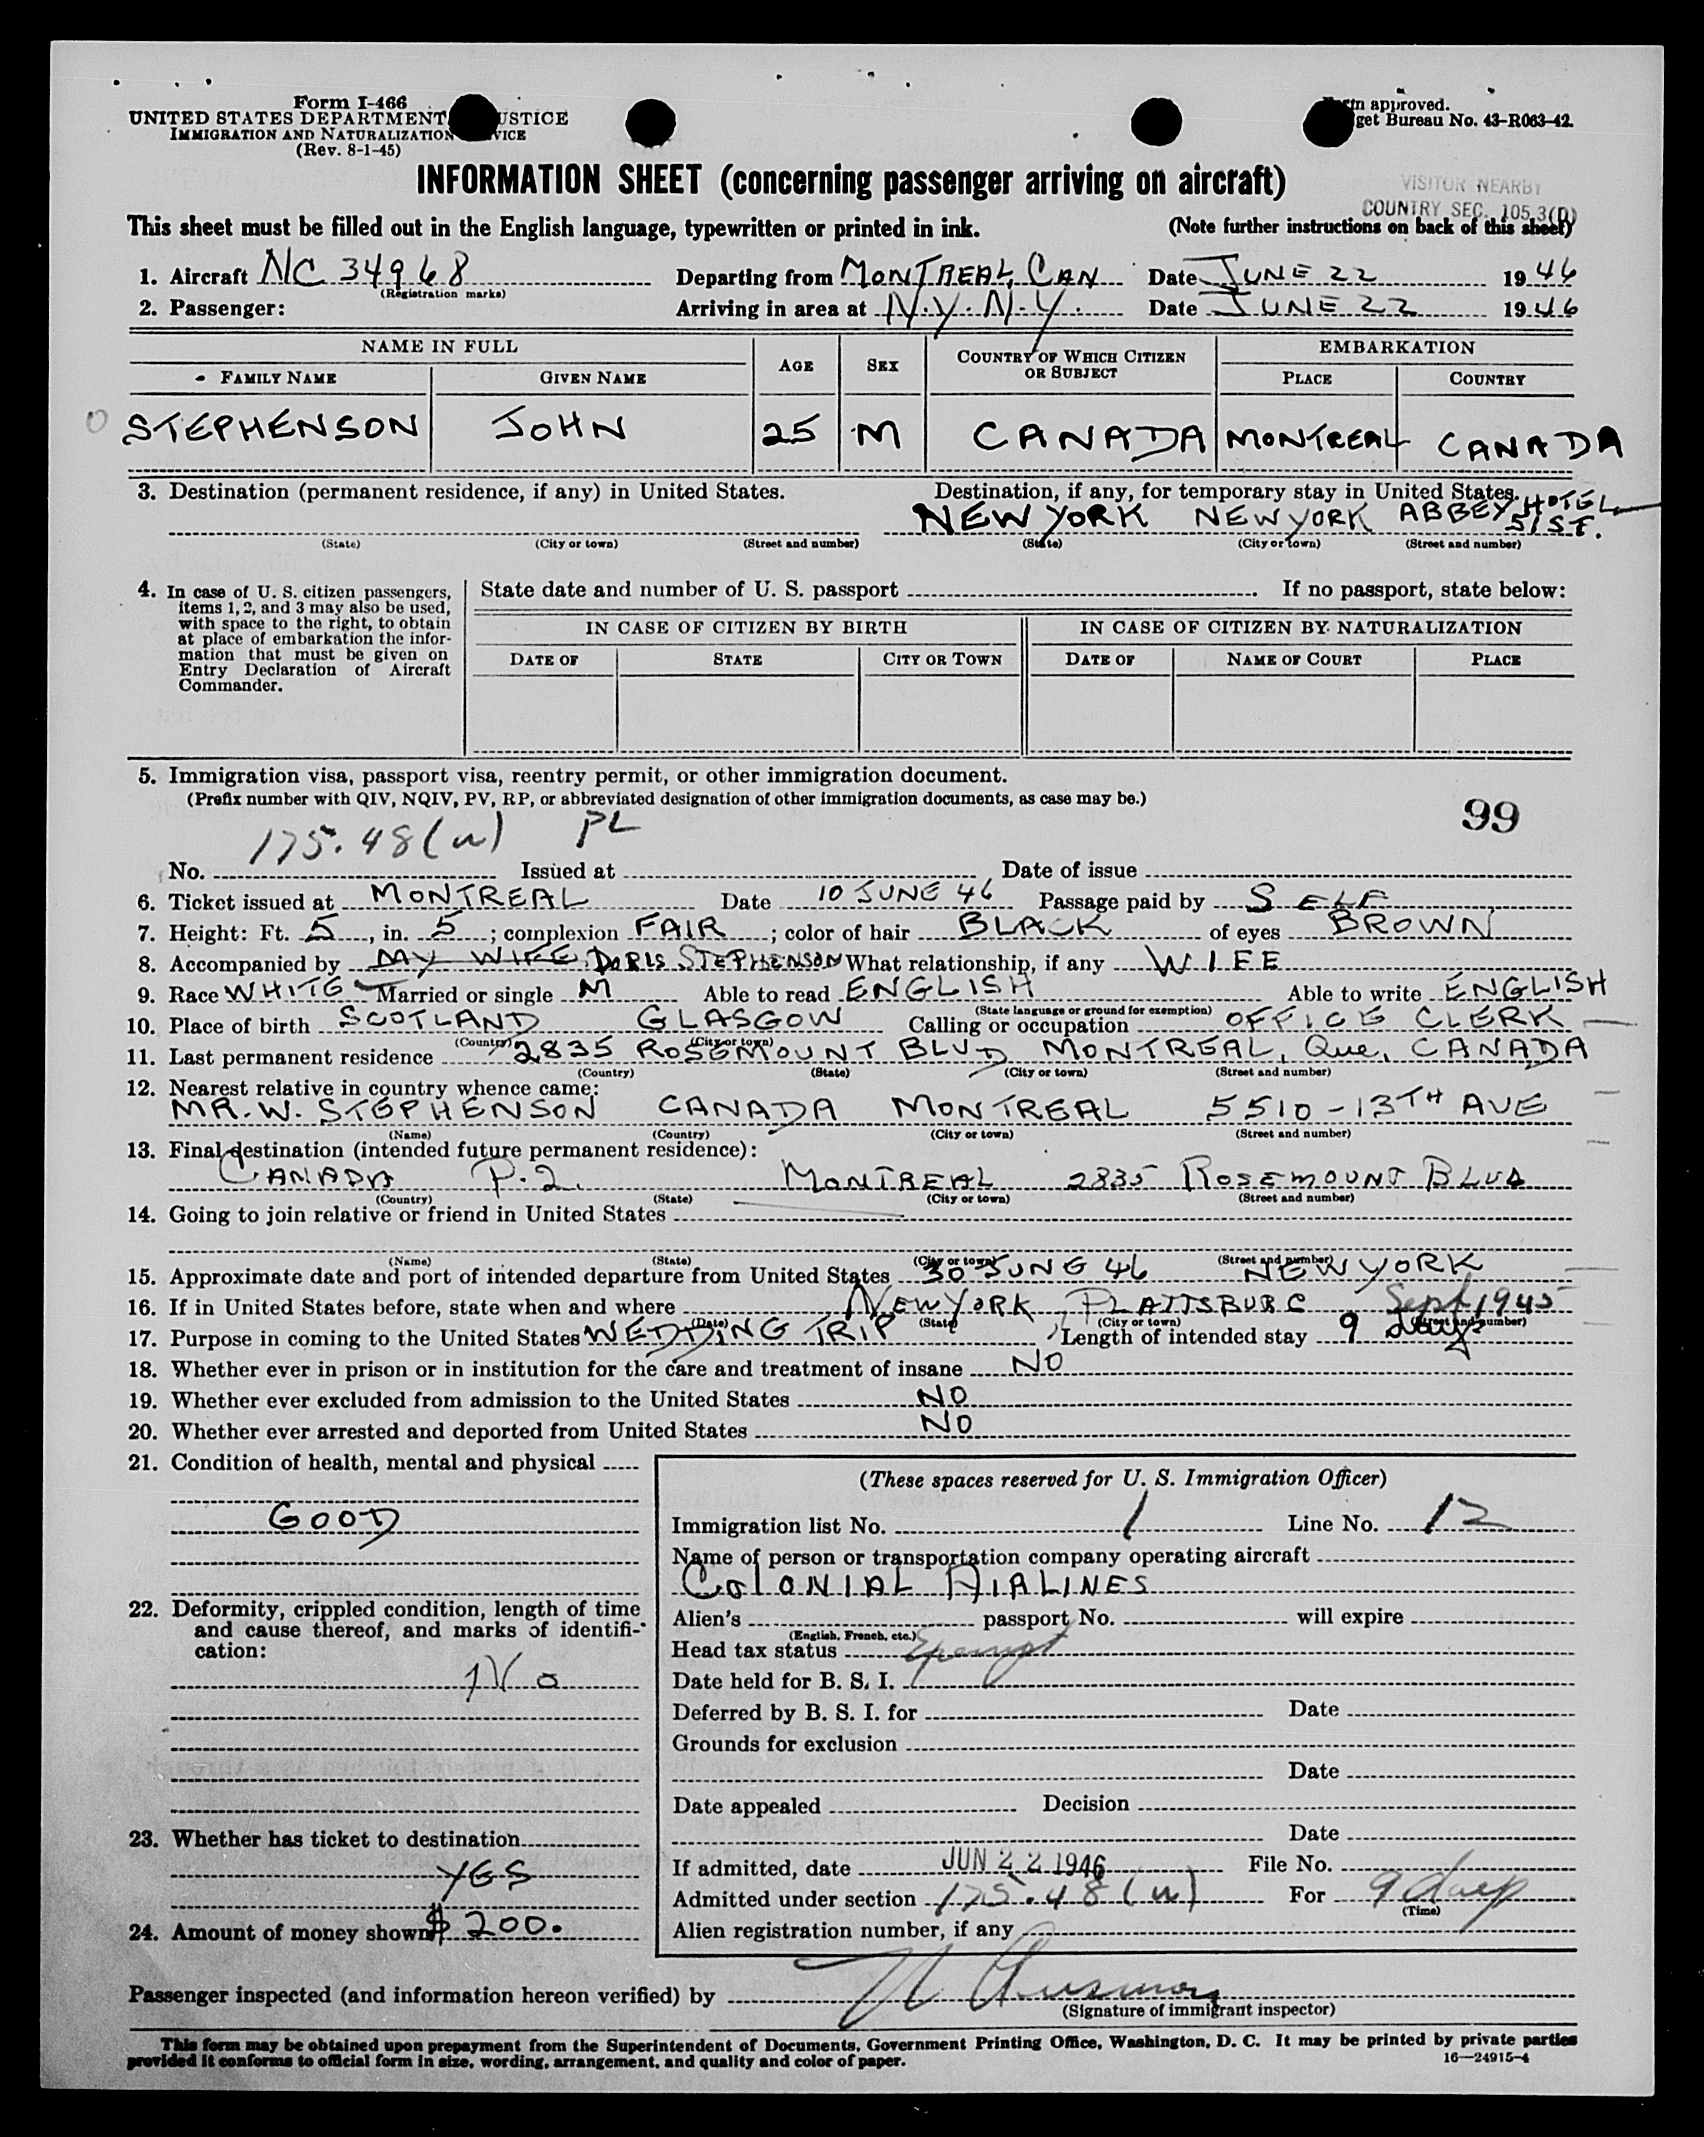 Form I-466
UNITED STATES DEPARTMENT USTICE
IMMIGRATION AND NATURALIZATION VICE
(Rev. 8-1-45)
m approved.
get Bureau No. 43-R063-42.
INFORMATION SHEET (concerning passenger arriving on aircraft)
VISITOR NEARBY
COUNTRY SEC. 105.3(D)
This sheet must be filled out in the English language, typewritten or printed in ink. (Note further instructions on back of this sheet)
1. Aircraft NC 34968 Departing from MONTREAL, CAN Date JUNE 22 1946
(Registration marks)
2. Passenger: Arriving in area at N.Y. N.Y. Date JUNE 22 1946
NAME IN FULL AGE SEX COUNTRY OF WHICH CITIZEN OR SUBJECT EMBARKATION
FAMILY NAME GIVEN NAME PLACE COUNTRY
STEPHENSON JOHN 25 M CANADA MONTREAL CANADA
3. Destination (permanent residence, if any) in United States. Destination, if any, for temporary stay in United States.
NEW YORK NEW YORK ABBEY HOTEL 51 ST.
(State) (City or town) (Street and number) (State) (City or town) (Street and number)
4. In case of U. S. citizen passengers, items 1, 2, and 3 may also be used, with space to the right, to obtain at place of embarkation the information that must be given on Entry Declaration of Aircraft Commander.
State date and number of U. S. passport If no passport, state below:
IN CASE OF CITIZEN BY BIRTH IN CASE OF CITIZEN BY NATURALIZATION
DATE OF STATE CITY OR TOWN DATE OF NAME OF COURT PLACE
5. Immigration visa, passport visa, reentry permit, or other immigration document.
(Prefix number with QIV, NQIV, PV, RP, or abbreviated designation of other immigration documents, as case may be.)
99
175.48(u) PL
No. Issued at Date of issue
6. Ticket issued at MONTREAL Date 10 JUNE 46 Passage paid by SELF
7. Height: Ft. 5, in. 5; complexion FAIR; color of hair BLACK of eyes BROWN
8. Accompanied by MY WIFE DORIS STEPHENSON What relationship, if any WIFE
9. Race WHITE Married or single M Able to read ENGLISH Able to write ENGLISH
(State language or ground for exemption)
10. Place of birth SCOTLAND GLASGOW Calling or occupation OFFICE CLERK
(Country) (City or town)
11. Last permanent residence 2835 ROSEMOUNT BLVD MONTREAL, Que, CANADA
(Country) (State) (City or town) (Street and number)
12. Nearest relative in country whence came:
MR. W. STEPHENSON CANADA MONTREAL 5510-13TH AVE
(Name) (Country) (City or town) (Street and number)
13. Final destination (intended future permanent residence):
CANADA P.2. MONTREAL 2835 ROSEMOUNT BLVD
(Country) (State) (City or town) (Street and number)
14. Going to join relative or friend in United States
(Name) (State) (City or town) (Street and number)
15. Approximate date and port of intended departure from United States 30 JUNE 46 NEW YORK
16. If in United States before, state when and where NEW YORK, PLATTSBURG Sept 1945
(Date) (State) (City or town) (Street and number)
17. Purpose in coming to the United States WEDDING TRIP Length of intended stay 9 days
18. Whether ever in prison or in institution for the care and treatment of insane NO
19. Whether ever excluded from admission to the United States NO
20. Whether ever arrested and deported from United States NO
21. Condition of health, mental and physical
GOOD
22. Deformity, crippled condition, length of time and cause thereof, and marks of identification:
No
23. Whether has ticket to destination
YES
24. Amount of money shown $200.
(These spaces reserved for U. S. Immigration Officer)
Immigration list No. 1 Line No. 12
Name of person or transportation company operating aircraft
COLONIAL AIRLINES
Alien's passport No. will expire
(English, French, etc.)
Head tax status Exempt
Date held for B. S. I.
Deferred by B. S. I. for Date
Grounds for exclusion
Date
Date appealed Decision
Date
If admitted, date JUN 22 1946 File No.
Admitted under section 175.48(u) For 9 days
(Time)
Alien registration number, if any
Passenger inspected (and information hereon verified) by
(Signature of immigrant inspector)
This form may be obtained upon prepayment from the Superintendent of Documents, Government Printing Office, Washington, D. C. It may be printed by private parties
provided it conforms to official form in size, wording, arrangement, and quality and color of paper.
16—24915-4